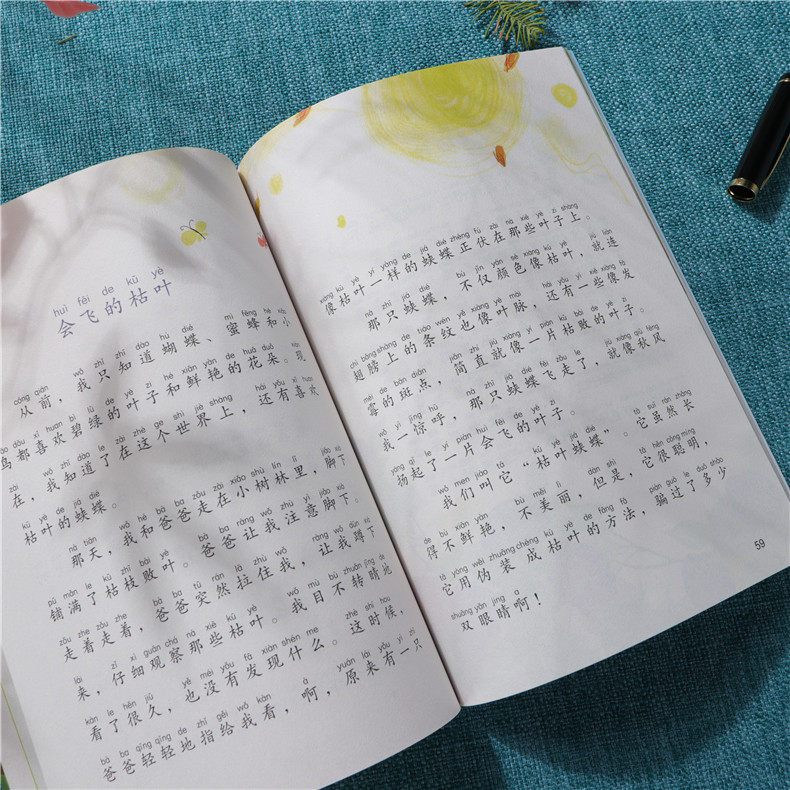 huì fēi de kū yè
会飞的枯叶
cóng qián wǒ zhǐ zhī dào hú dié mì fēng hé xiǎo
从前，我只知道蝴蝶、蜜蜂和小
dōu xǐ huan bì lǜ de yè zi hé xiān yàn de huā duǒ xiàn
鸟都喜欢碧绿的叶子和鲜艳的花朵。现
zài wǒ zhī dào le zài zhè ge shì jiè shàng hái yǒu xǐ huan
在，我知道了在这个世界上，还有喜欢
kū yè de jiá dié
枯叶的蛱蝶。
nà tiān wǒ hé bà ba zǒu zài xiǎo shù lín lǐ jiǎo xià
那天，我和爸爸走在小树林里，脚下
pū mǎn le kū zhī bài yè bà ba ràng wǒ zhù yì jiǎo xià
铺满了枯枝败叶。爸爸让我注意脚下。
zǒu zhe zǒu zhe bà ba tū rán lā zhù wǒ ràng wǒ dūn xià
走着走着，爸爸突然拉住我，让我蹲下
lái zǐ xì guān chá nà xiē kū yè wǒ mù bù zhuǎn jīng de
来，仔细观察那些枯叶。我目不转睛地
kàn le hěn jiǔ yě méi yǒu fā xiàn shén me zhè shí hou
看了很久，也没有发现什么。这时候，
bà ba qīng qīng de zhǐ gěi wǒ kàn à yuán lái yǒu yì zhī
爸爸轻轻地指给我看，啊，原来有一只
xiàng kū yè yí yàng de jiá dié zhèng fú zài nà xiē yè zi shàng
像枯叶一样的蛱蝶正伏在那些叶子上。
nà zhī jiá dié bù jǐn yán sè xiàng kū yè jiù lián
那只蛱蝶，不仅颜色像枯叶，就连
chì bǎng shàng de tiáo wén yě xiàng yè mài hái yǒu yì xiē xiàng fā
翅膀上的条纹也像叶脉，还有一些像发
méi de bān diǎn jiǎn zhí jiù xiàng yí piàn kū bài de yè zi
霉的斑点，简直就像一片枯败的叶子。
wǒ yì jīng hū nà zhī jiá dié fēi zǒu le jiù xiàng qiū fēng
我一惊呼，那只蛱蝶飞走了，就像秋风
yáng qǐ le yí piàn huì fēi de yè zi
扬起了一片会飞的叶子。
wǒ men jiào tā kū yè jiá dié tā suī rán zhǎng
我们叫它“枯叶蛱蝶”。它虽然长
de bú xiān yàn bù měi lì dàn shì tā hěn cōng míng
得不鲜艳，不美丽，但是，它很聪明，
tā yòng wěi zhuāng chéng kū yè de fāng fǎ piàn guò le duō shǎo
它用伪装成枯叶的方法，骗过了多少
shuāng yǎn jing a
双眼睛啊！
59